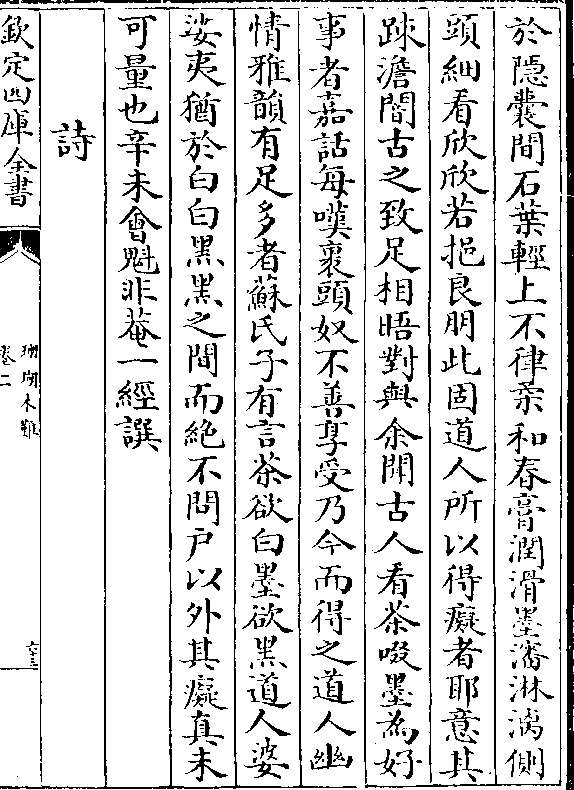 於隱囊間石葉輕上不律柔和春膏潤滑墨瀋淋漓側
頭細看欣欣若挹良朋此固道人所以得癡者耶意其
踈澹閽古之致足相晤對與余聞古人看茶啜墨為好
事者嘉話每嘆裹頭奴不善享受乃今而得之道人幽
情雅韻有足多者蘇氏子有言茶欲白墨欲黒道人婆
娑夷猶於白白黒黒之間而絶不問户以外其癡真未
可量也辛未會魁非菴一經譔
詩
欽定四庫全書
珊瑚木難
卷二
六十三